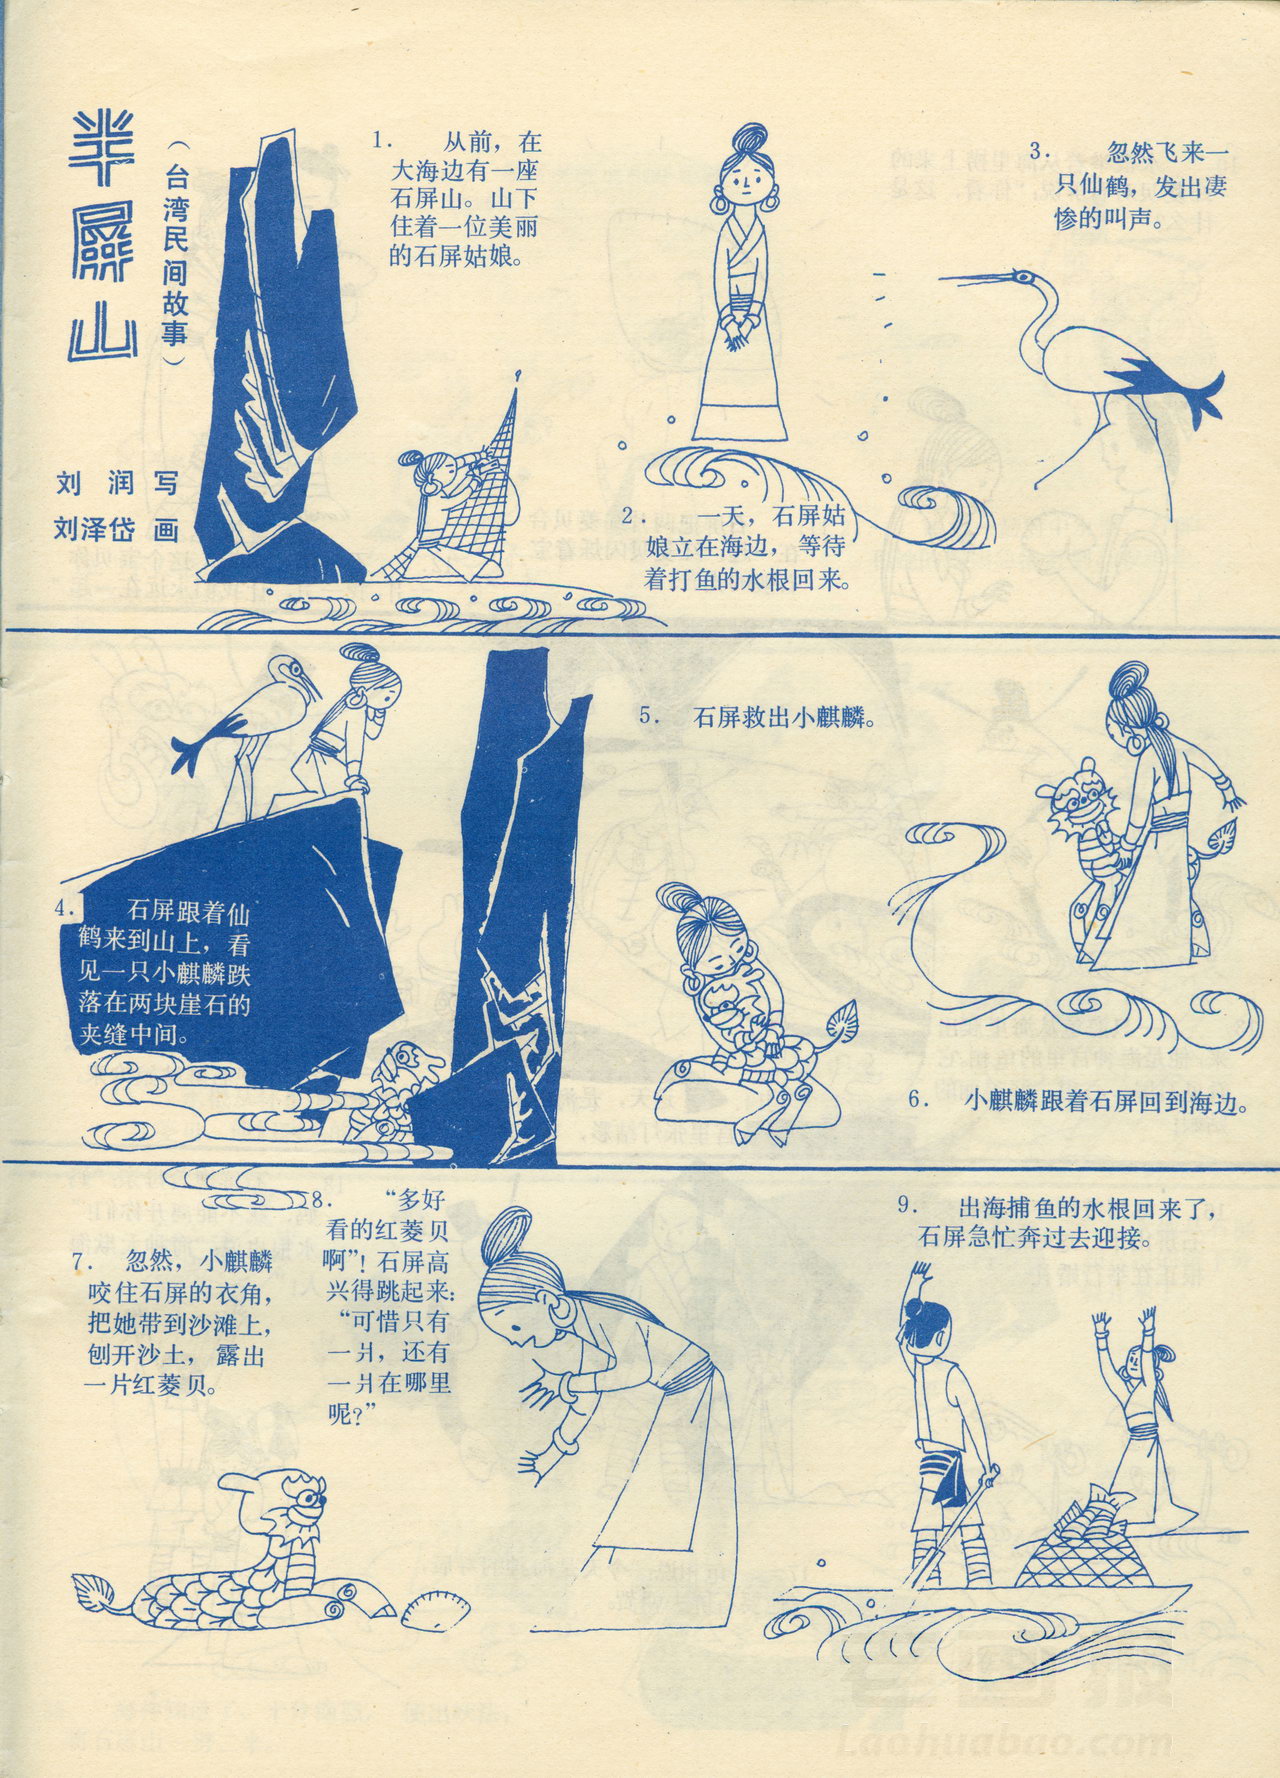 半屏山
（台湾民间故事）
刘 润 写
刘泽岱 画
1. 从前，在
大海边有一座
石屏山。山下
住着一位美丽
的石屏姑娘。
2. 一天，石屏姑
娘立在海边，等待
着打鱼的水根回来。
3. 忽然飞来一
只仙鹤，发出凄
惨的叫声。
4. 石屏跟着仙
鹤来到山上，看
见一只小麒麟跌
落在两块崖石的
夹缝中间。
5. 石屏救出小麒麟。
6. 小麒麟跟着石屏回到海边。
7. 忽然，小麒麟
咬住石屏的衣角，
把她带到沙滩上，
刨开沙土，露出
一片红菱贝。
8. “多好
看的红菱贝
啊”！石屏高
兴得跳起来：
“可惜只有
一爿，还有
一爿在哪里
呢？”
9. 出海捕鱼的水根回来了，
石屏急忙奔过去迎接。
老画报
Laohuabao.com